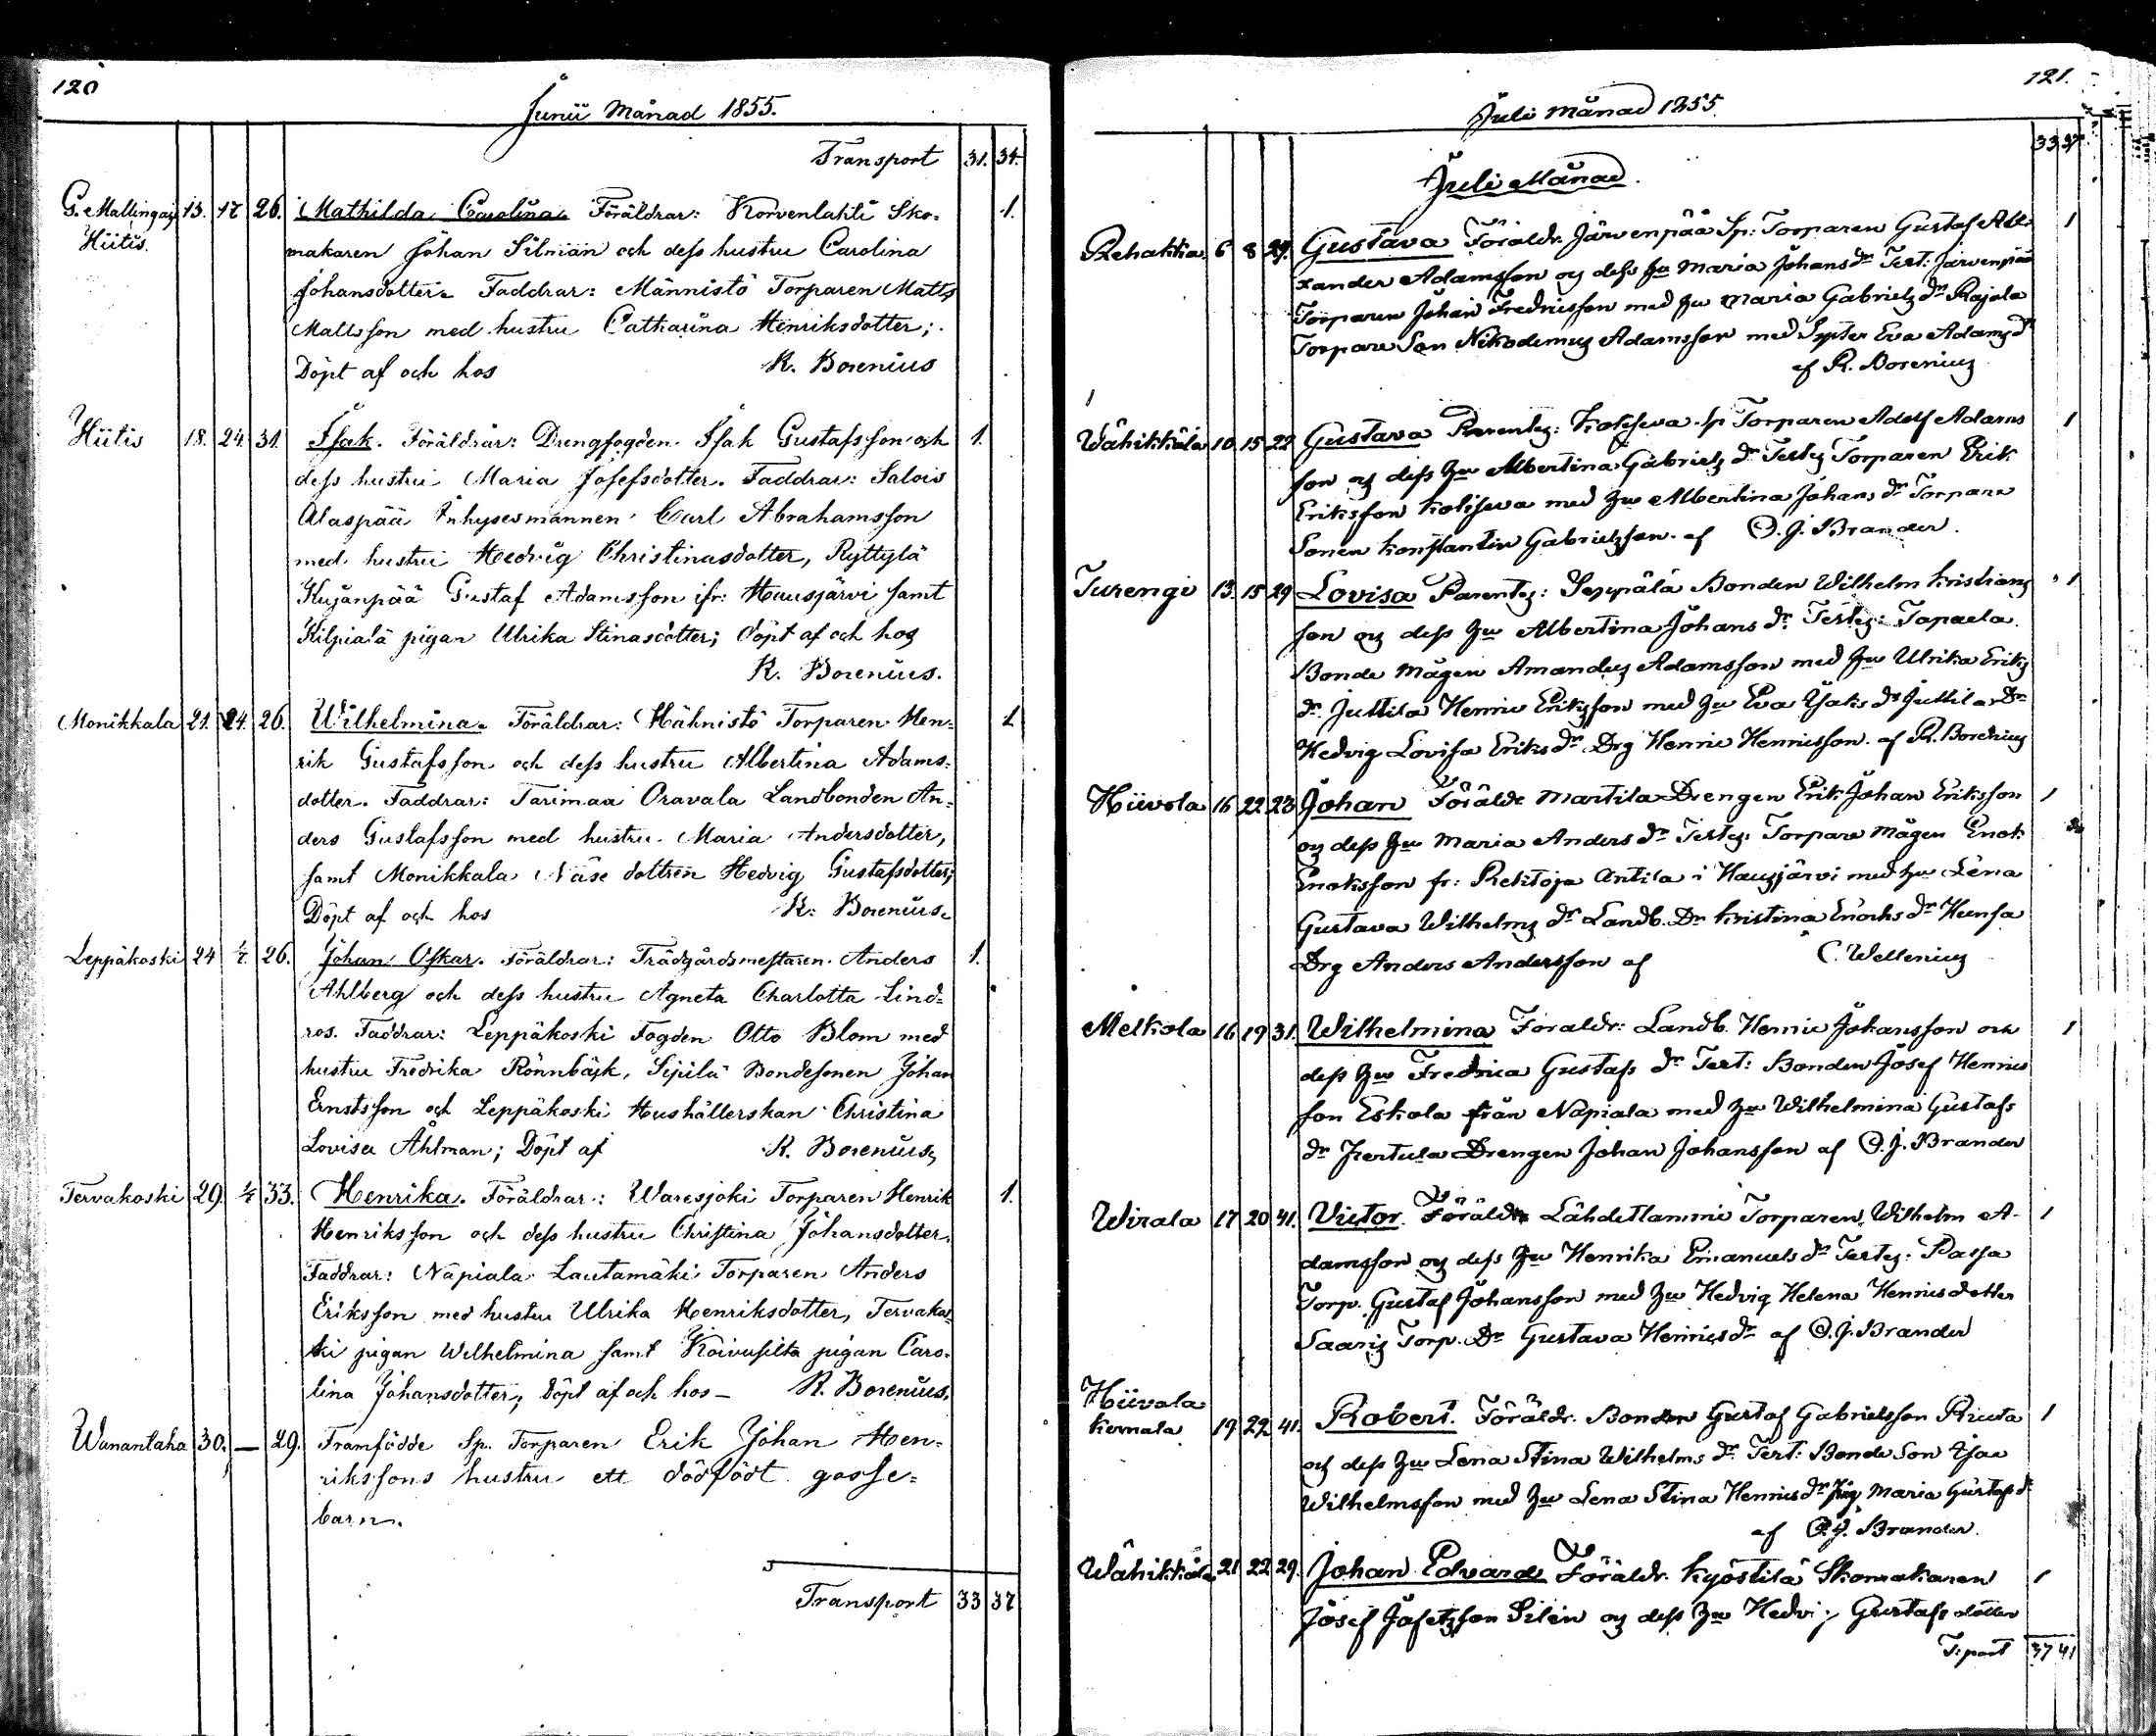 120
Junii Månad 1855.
Transport 31. 34.
G. Mallinga 13. 17 26. Mathilda Carolina. Föräldrar: Korvenlahti Sko- 1.
Hiitis. makaren Johan Silmän och dess hustru Carolina
Johansdotter. Faddrar: Männistö Torparen Matts
Mattsson med hustru Catharina Henriksdotter;
Döpt af och hos R. Borenius
Hiitis 18. 24 31. Isak. Föräldrar: Drengfogden Isak Gustafsson och 1.
dess hustru Maria Josefsdotter. Faddrar: Salois
Alaspää Inhysesmannen Carl Abrahamsson
med hustru Hedvig Christinasdotter, Ryttylä
Kujanpää Gustaf Adamsson ifr: Hausjärvi samt
Kilpialä pigan Ulrika Stinasdotter; döpt af och hos
R. Borenius.
Monikkala 21. 24. 26. Wilhelmina. Föräldrar: Hähnistö Torparen Hen- 1
rik Gustafsson och dess hustru Albertina Adams-
dotter. Faddrar: Tarimaa Oravala Landbonden An-
ders Gustafsson med hustru Maria Andersdotter,
samt Monikkala Näse dottren Hedvig Gustafsdotter;
Döpt af och hos R. Borenius.
Leppäkoski 24 1/7. 26. Johan Oskar. Föräldrar: Trädgårdsmestaren Anders 1.
Ahlberg och dess hustru Agneta Charlotta Lind-
ros. Faddrar: Leppäkoski Fogden Otto Blom med
hustru Fredrika Rönnbäck, Sipilä Bondesonen Johan
Ernstsson och Leppäkoski Hushållerskan Christina
Lovisa Åhlman; Döpt af R. Borenius,
Tervakoski 29. 1/7 33. Henrika. Föräldrar: Waresjoki Torparen Henrik 1.
Henriksson och dess hustru Christina Johansdotter.
Faddrar: Näpiala Lautamäki Torparen Anders
Eriksson med hustru Ulrika Henriksdotter, Tervakos-
ki pigan Wilhelmina samt Koivusilta pigan Caro-
lina Johansdotter; Döpt af och hos – R. Borenius.
Wanantaka 30. — 29. Framfödde Sp. Torparen Erik Johan Hen-
rikssons hustru ett dödfödt gosse-
barn.
Transport 33 37
121.
Juli Månad 1855.
33 37
Juli Månad.
Rehakka 6 8 29. Gustava Föräldr. Järvenpää Sp: Torparen Gustaf Alex- 1
xander Adamsson og dess hu Maria Johans dr Test: Järvenpää
Torparen Johan Fredricsson med hu Maria Gabriels dr Rajala
Torpare Son Nikodemus Adamsson med Syster Eva Adams dr
af R. Borenius
Wähikkälä 10 15 22 Gustava Parentes: Sp Torparen Adolf Adams 1
son og dess hu Albertina Gabriels dr Testes Torparen Erik
Eriksson med hu Albertina Johans dr Torpare
Sonen Konstantin Gabrielsson. af O. J. Brander.
Turengi 13. 15 29 Lovisa Parentes: Seppälä Bonden Wilhelm Kristians 1
son og dess hu Albertina Johans dr Testes: Tapaela
Bonde Mågen Amandus Adamsson med hu Ulrika Eriks
dr. Juttila Henric Eriksson med hu Eva Isaks dr Juttila Dr
Hedvig Lovisa Eriks dr Drg Henric Henricsson. af R. Borenius
Hiivola 16 22 23 Johan Föräldr. Martila Drengen Erik Johan Eriksson 1
og dess hu Maria Anders dr Testes: Torpare Mågen Enok
Enoksson fr: Rektoja Antila i Hausjärvi med hu Lena
Gustava Wilhelms dr Landb. Dr Kristina Enochs dr Hunsa
Drg Anders Andersson af C. Wellenius
Melkola 16 19 31. Wilhelmina Föräldr: Landb. Henric Johansson och 1
dess hu Fredrica Gustafs dr Test: Bonden Josef Henrics
son Eskola från Näpiala med hu Wilhelmina Gustafs
dr Drengen Johan Johansson af O. J. Brander
Wirala 17 20 41. Victor. Föräldr. Lähdetlammi Torparen Wilhelm A- 1
damsson og dess hu Henrika Emanuels dr Testes: Passa
Torp. Gustaf Johansson med hu Hedvig Helena Henricsdotter
Saaris Torp. Dr Gustava Henrics dr af O. J. Brander
Hiivola
Kernala 19 22 41. Robert. Föräldr. Bonden Gustaf Gabrielsson Riuta 1
og dess hu Lena Stina Wilhelms dr Test: Bonde Son Isac
Wilhelmsson med hu Lena Stina Henrics dr Pig Maria Gustafs dr
af O. J. Brander.
Wähikkälä 21 22 29. Johan Edvard Föräldr. Kyöstilä Skomakaren 1
Josef Jafetsson Silen og dess hu Hedvig Gustafs dotter
T:port 37 41